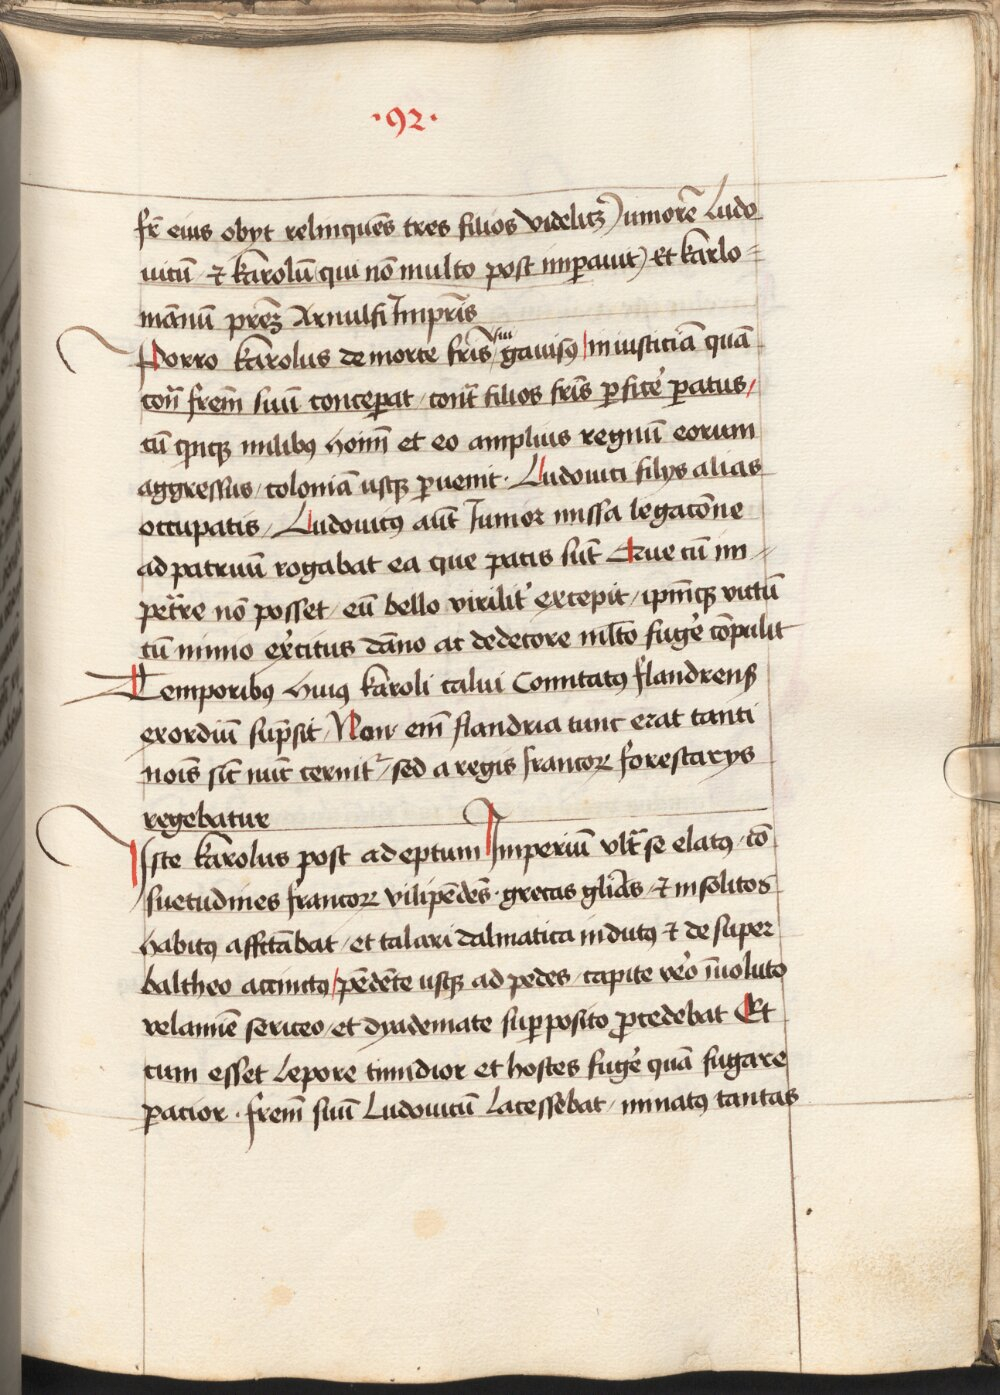 ·92·
fr̄ eius obyt relinquēs tres filios videlitꝫ iuniorē Ludo
uicū ⁊ karolū (qui nō multo post imꝑauit) Et karlo=
mānū prēꝫ Arnulfi Imꝑr̄is
Porro karolus de morte fr̄is gauisꝰ iniusticiā quā
cōn̄ frēm suū conceꝑat / cont̄ filios fr̄is ꝑficē ꝑatus /
cū qͥnqꝫ milibꝰ hoīm̄ et eo amplius regnū eorum
aggressus / coloniā usqꝫ ꝑuenit · Ludouici filys alias
occupatis / Ludouicꝰ aūt Iunior missa legacōne
ad patruū rogabat ea que pacis sūt Que cū im=
pet̄re nō posset / eū bello virilit̓ excepit / ip̄mqꝫ victū
cū nimio ex̓citus dāno ac dedecore ml̄to fug̓e cōpulit
Temporibꝰ huiꝰ karoli calui Comitatꝰ flandrenꝫ
exordiū sūp̄sit / Non em̄ flandria tunc erat tanti
noīs sic̄ nūc cernitᷣ / sed a regis francorꝝ forestarys
regebatur
Iste karolus post adeptum Imperiū vlt̄ se elatꝰ / cō
suetudines francorꝝ vilipēdēs · grecas gl̄ias ⁊ insolitos
habitꝰ affc̄tabat / et talari dalmatica indutꝰ ⁊ desuper
baltheo accinctꝰ / pēdēte usqꝫ ad pedes / capite ve̓o īuoluto
velamīe sericeo / et dyademate suꝑposito ꝓcedebat Et
cum esset Lepore timidior et hostes fug̓e quā fugare
ꝑacior · frēm suū Ludouicū Lacessebat / minatꝰ tantas